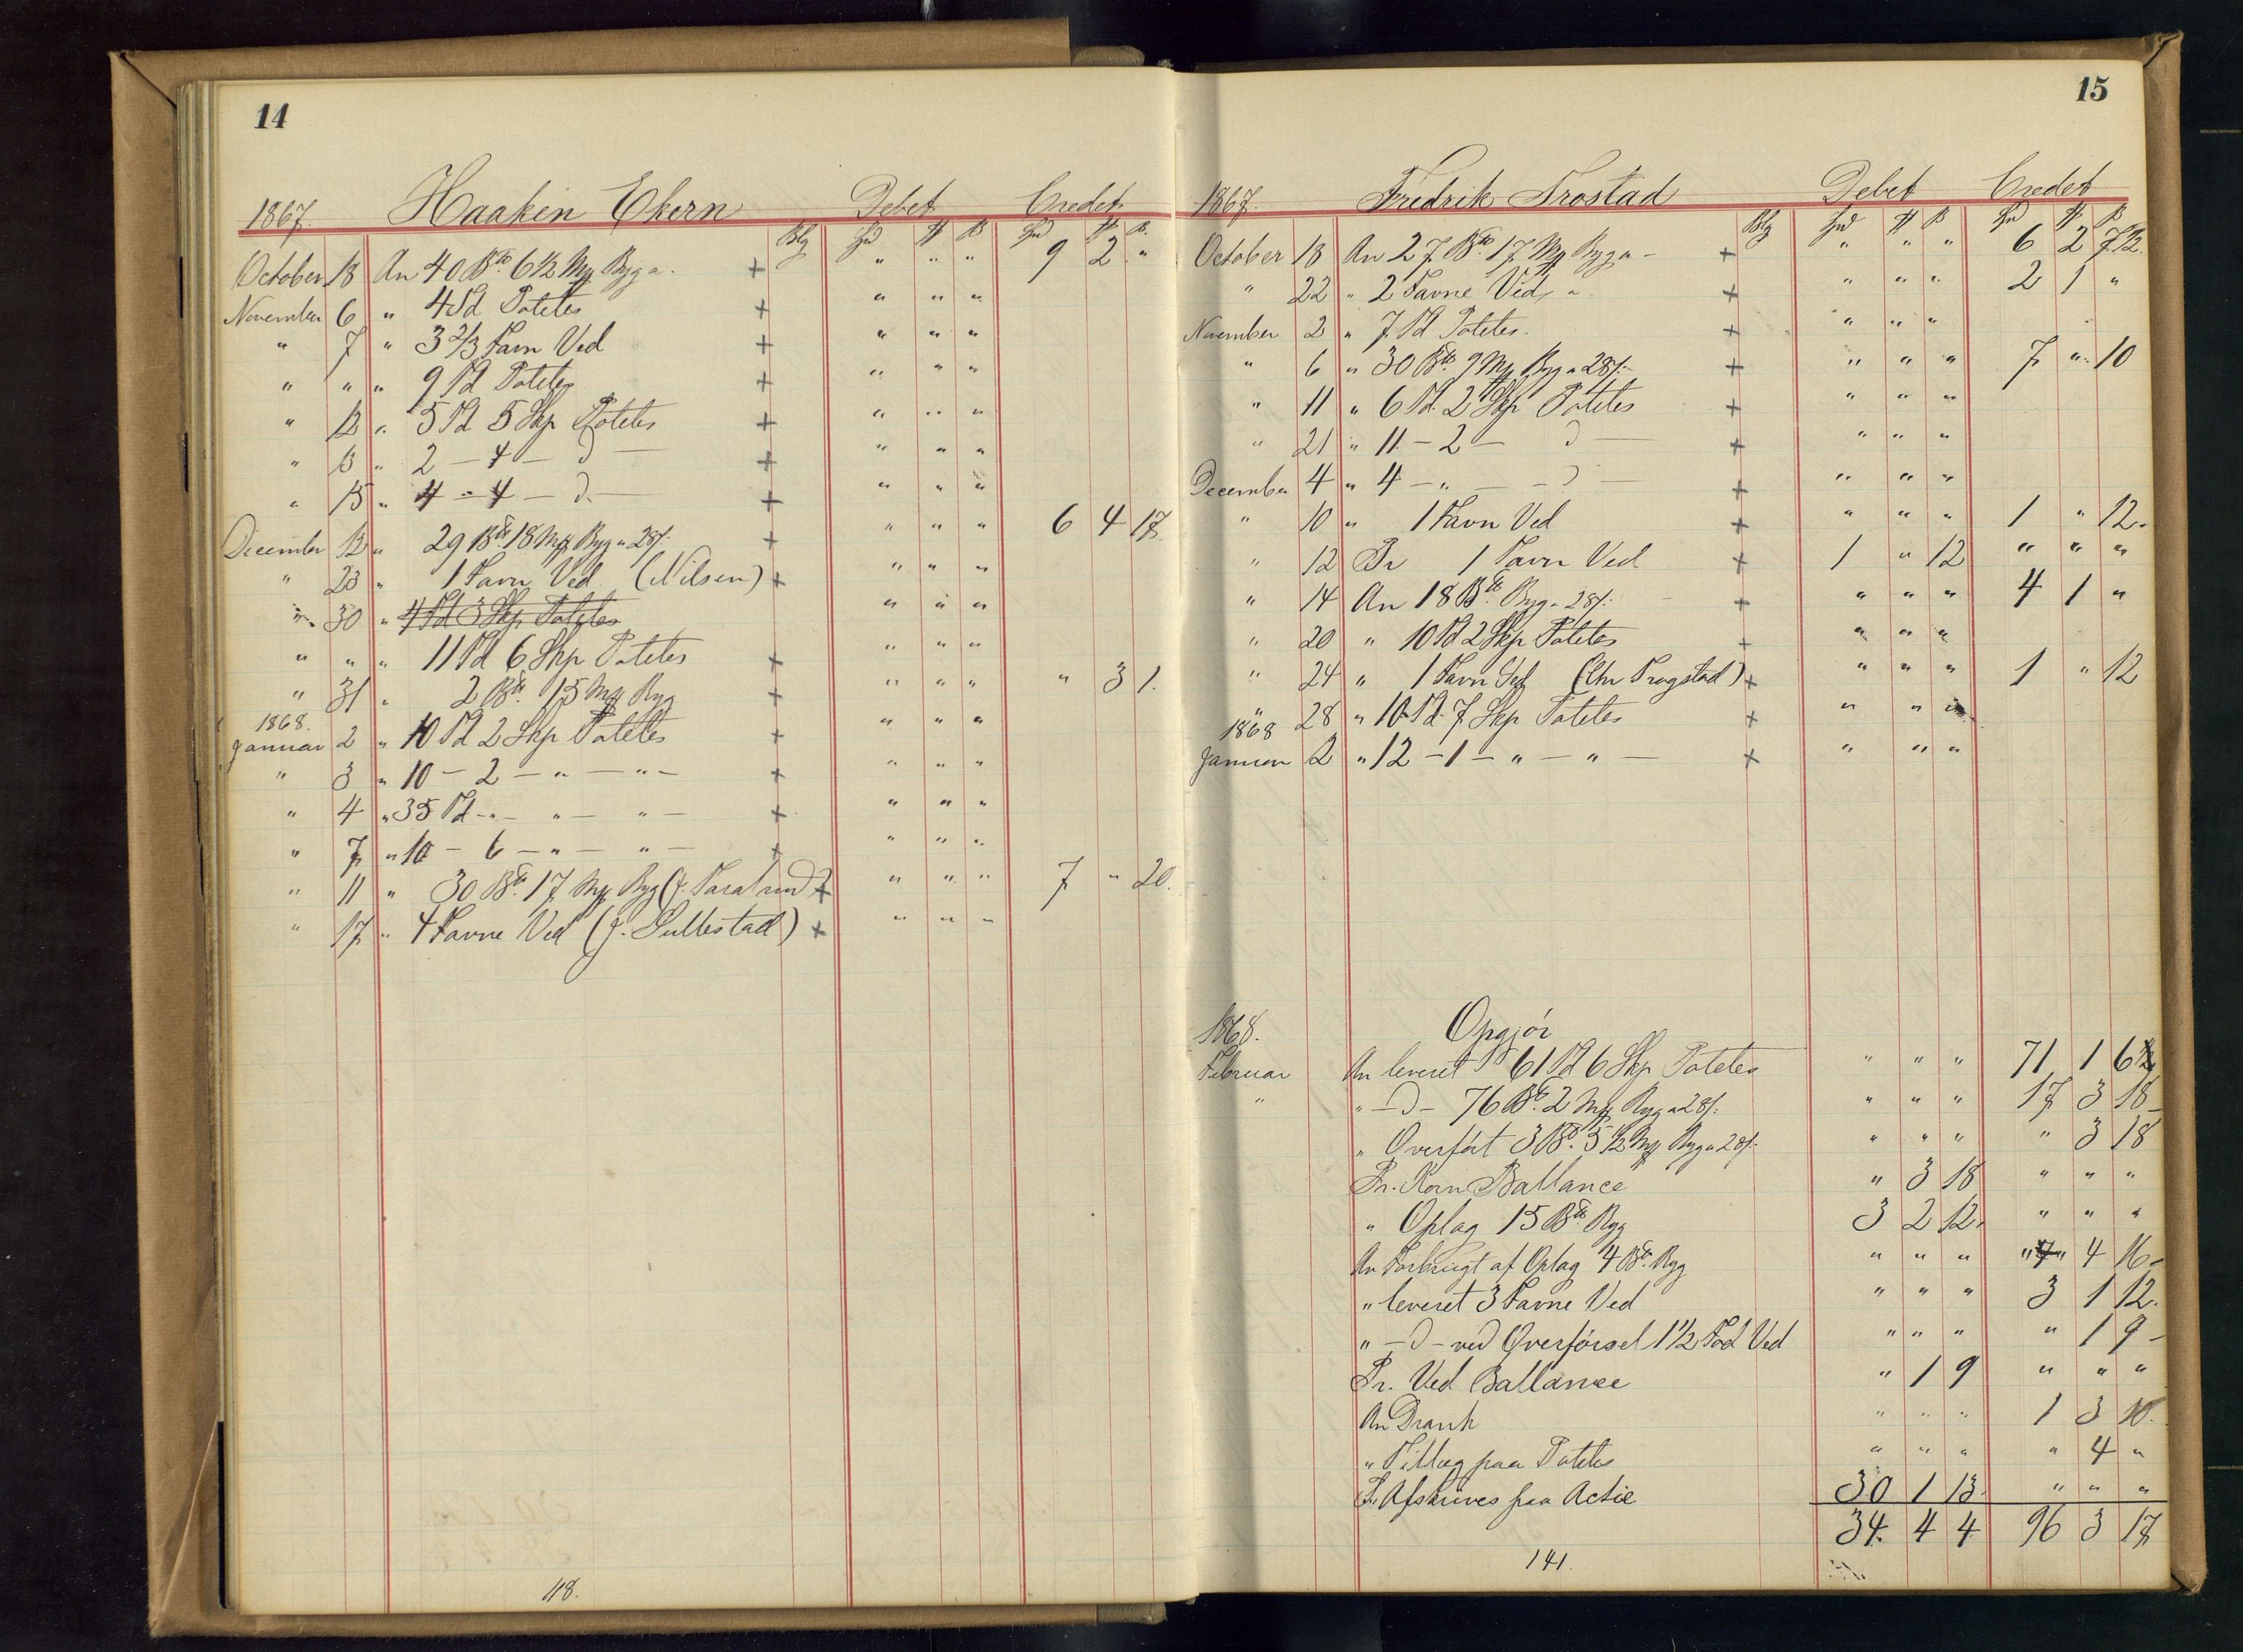 14
1867. Haakin Ekern Debet Credet
Blg Spd # ß Spd # ß
October 18 An 40 B℔ 6½ Mk Byg a. + " " " 9 2 "
November 6 " 4 Td Potetes + " " "
" 7 " 3⅔ Favn Ved + " " "
" " " 9 Td Potetes + " " "
" 12 " 5 Td 5 Skp Potetes + " " "
" 13 " 2 – 4 – d – + " " "
" 15 " 4 – 4 – d. – + " " "
December 12 " 29 B℔ 18 Mk Byg a 28/- + " " " 6 4 17
" 23 " 1 Favn Ved (Nilsen) + " " "
" 30 " 4 Td 3 Skp Potetes " " "
" " " 11 Td 6 Skp Potetes + " " "
" 31 " 2 B℔ 15 Mk Byg + " " " " 3 1.
1868.
Januar 2 " 10 Td 2 Skp Potetes + " " "
" 3 " 10 – 2 – " – " – + " " "
" 4 " 35 Td – " – " – " – + " " "
" 7 " 10 – 6 – " – " – + " " "
" 11 " 30 B℔ 17 Mk Byg + " " " 7 " 20.
" 17 " 4 Favne Ved (J. Sullestad) + " " "
48.
15
1867. Fredrik Frostad Debet Credet
Blg Spd # ß Spd # ß
October 18 An 27 B℔ 17 Mk Byg a – + " " " 6 2 7½
" 22 " 2 Favne Ved a + " " " 2 1 "
November 2 " 7 Td Potetes. + " " "
" 6 " 30 B℔ 9 Mk Byg a 28/- + " " " 7 " 10
" 11 " 6 Td 2 Skp Potetes + " " "
" 21 " 11 – 2 – d – + " " "
December 4 " 4 – " – – d – + " " "
" 10 " 1 Favn Ved + " " " 1 " 12.
" 12 Pr 1 Favn Ved + 1 " 12 " " "
" 14 An 18 B℔ Byg a 28/- + " " " 4 1 "
" 20 " 10 Td 2 Skp Potetes + " " "
" 24 " 1 Favn Ved (Chr Frogstad) + " " " 1 " 12
" 28 " 10 Td 7 Skp Potetes + " " "
1868
Januar 2 " 12 – 1 – " – " – + " " "
1868. Opgjör
Februar An leveret 61 Td 6 Skp Potetes " " " 71 1 6
" " – d – 76 B℔ 2 Mk Byg a 28/- " " " 17 3 18
" Overfört 3 B℔ 5½ Mk Byg a 28/- " " " " 3 18
Pr. Korn Ballance " 3 18 " " "
" Oplag 15 B℔ Byg 3 2 12. " " "
An Forbrugt af Oplag 4 B℔ Byg " " " " 4 16
" leveret 3 Favne Ved " " " 3 1 12.
" – d – ved Overförsel 1½ Fod Ved " " " " 1 9
Pr. Ved Ballance " 1 9 " " "
An Drank " " " 1 3 10.
" Tillæg paa Potetes " " " " 4 "
Pr. Afskrives paa Actie 30 1 13. " " "
34. 4 4 96 3 17
141.